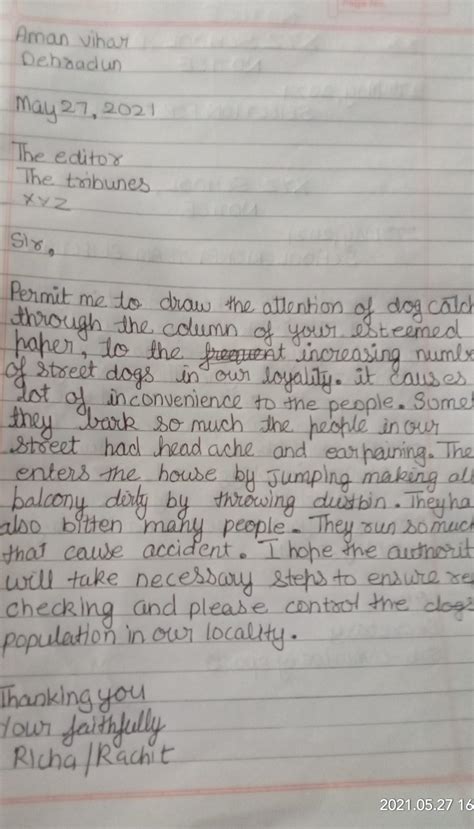 Aman vihar
Dehradun
May 27, 2021
The editor
The tribunes
XYZ
Sir,
Permit me to draw the attention of dog catch
through the column of your esteemed
paper, to the frequent increasing numbe
of street dogs in our loyality. it causes
lot of inconvenience to the people. Some
they bark so much the people in our
street had head ache and earpaining. The
enters the house by Jumping making al
balcony dirty by throwing dustbin. They ha
also bitten many people. They run so muc
that cause accident. I hope the authorit
will take necessary steps to ensure re
checking and please control the dogs
population in our locality.
Thanking you
Your faithfully
Richa/Rachit
2021.05.27 16